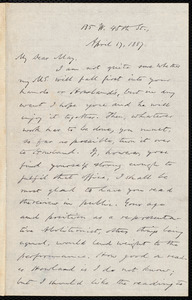 185 W. 95th St.,
April 17, 1887.
My Dear May,
I am not quite sure whether
my MS. will fall first into your
hands or Howland's, but in any
event I hope you and he will
enjoy it together. Then, whatever
work has to be done, you must,
so far as possible, turn it over
to Howland. If, however, you
find yourself strong enough to
fulfil that office, I shall be
most glad to have you read
the course in public. Your age
and position as a representa-
tive Abolitionist, other things being
equal, would lend weight to the
performance. How good a read-
er Howland is I do not know;
but I should like the reading to